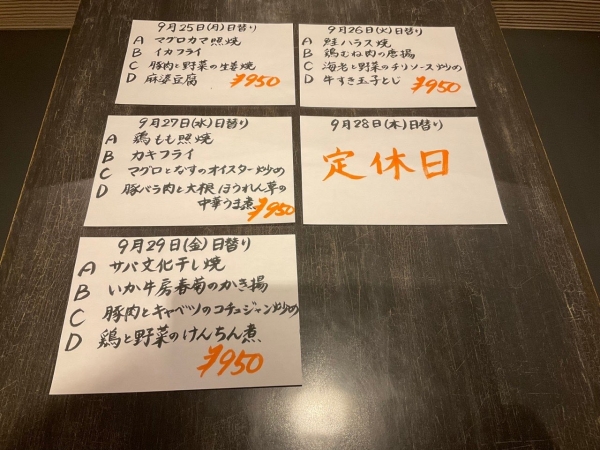 9月25日(月)日替り
A マグロカマ照焼
B イカフライ
C 豚肉と野菜の生姜焼
D 麻婆豆腐
¥950
9月26日(火)日替り
A 鮭ハラス焼
B 鶏むね肉の唐揚
C 海老と野菜のチリソース炒め
D 牛すき玉子とじ
¥950
9月27日(水)日替り
A 鶏もも照焼
B カキフライ
C マグロとなすのオイスター炒め
D 豚バラ肉と大根ほうれん草の
中華うま煮
¥950
9月28日(木)日替り
定休日
9月29日(金)日替り
A サバ文化干し焼
B いか牛房春菊のかき揚
C 豚肉とキャベツのコチュジャン炒め
D 鶏と野菜のけんちん煮
¥950